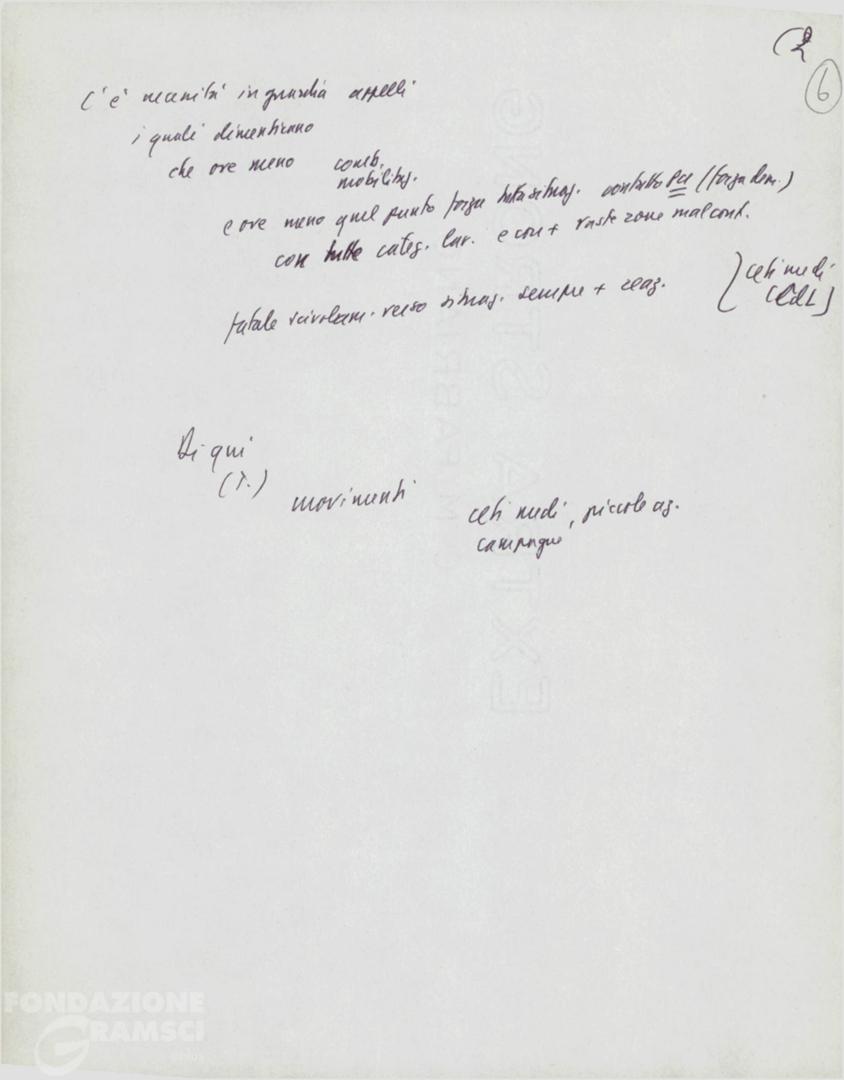 (2
6
C'è necessità in guardia appelli
i quali dimenticano
che ove meno comb.
mobilitaz.
e ove meno quel punto forza situaz. contatto PCI (forza dem.)
con tutte categ. lav. e con + vaste zone malcont.
fatale scivolam. verso situaz. sempre + reaz.
ceti medi
CdL
Di qui
(T.)
movimenti
ceti medi, piccole az.
campagne
EXTRA STRONG
FABRIANO
FONDAZIONE
GRAMSCI